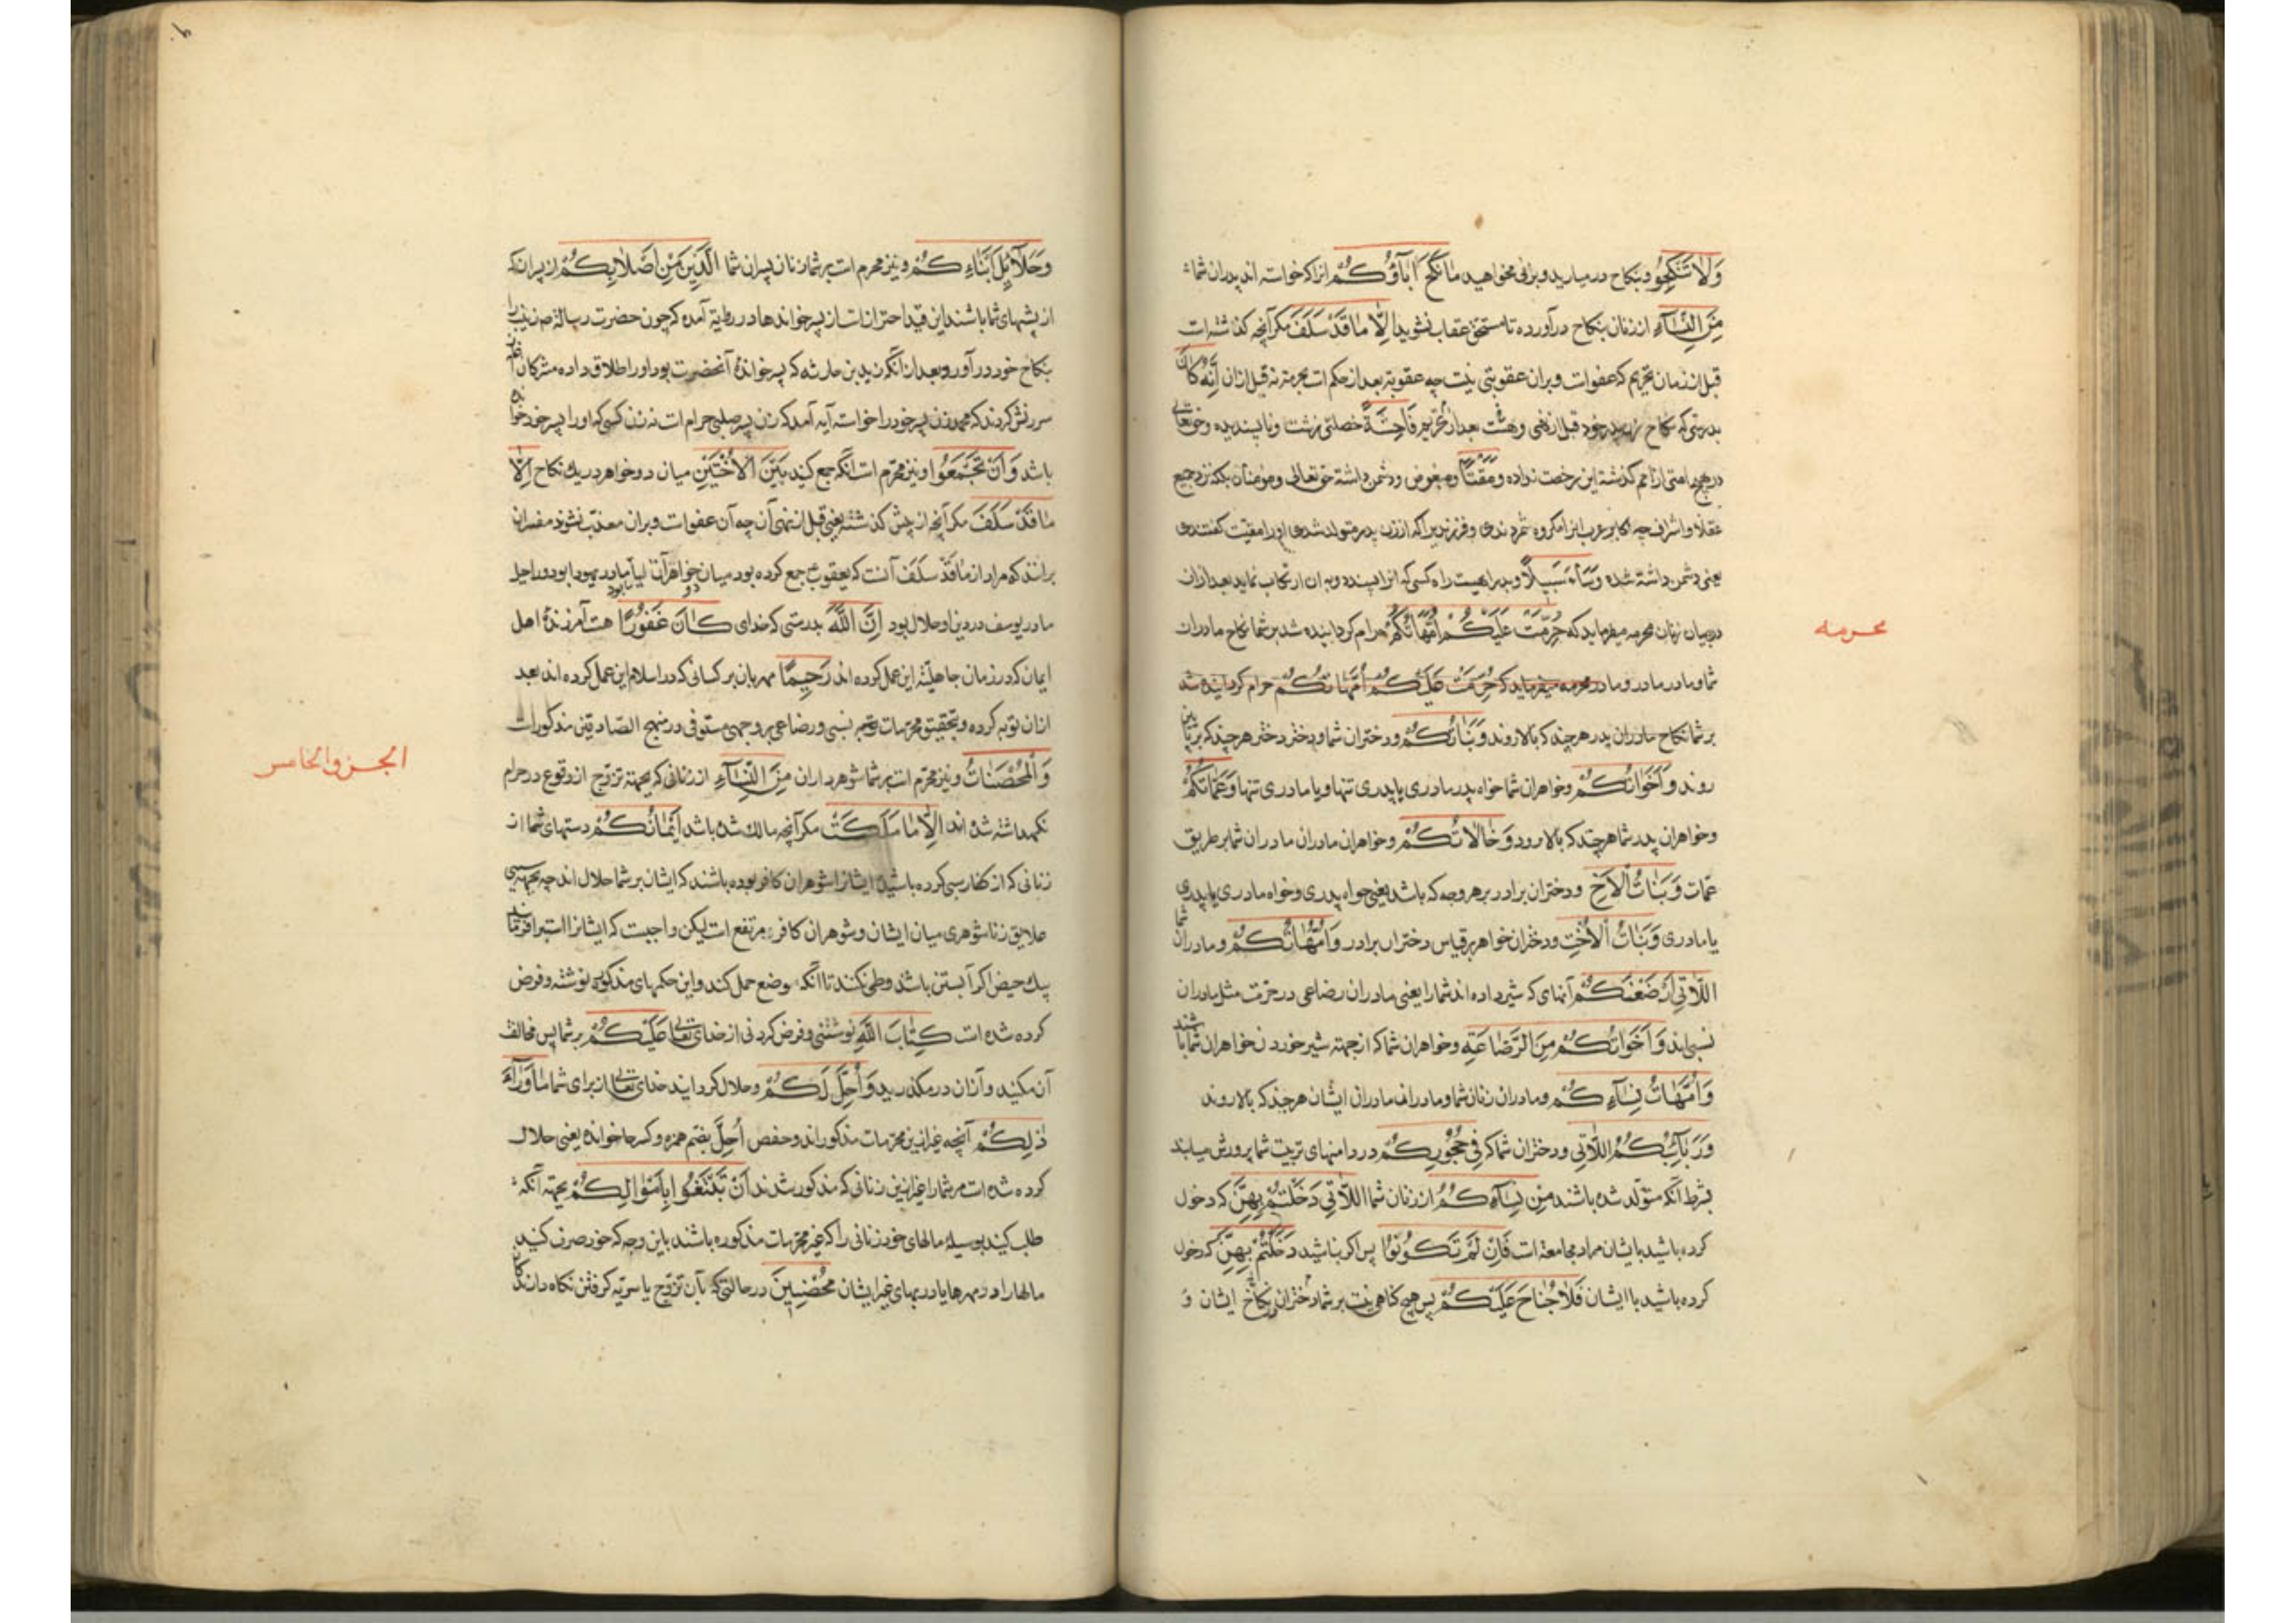 وَلَا تَنْكِحُوا و بنکاح درمیارید و بزنی مخواهید مَا نَكَحَ آبَاؤُكُمْ انرا که خواسته اند پدران شما
مِنَ النِّسَآءِ از زنان بنکاح درآورده تا مستحق عقاب نشوید اِلَّا مَا قَدْ سَلَفَ مکر آنچه کذشته است
قبل از زمان تحریم که عفو است و بران عقوبتی نیست چه عقوبة بعد از حکم است بحرمة نه قبل ازان اِنَّهُ كَانَ
بدرستی که نکاح زن پدر خود قبل از نهی و هست بعد از تحریم فَاحِشَةً خصلتی زشت و ناپسندیده و حقتعالی
در هیچ امتی از امم کذشته این رخصت نداده وَمَقْتًا و مبغوض و دشمن داشته حق تعالی و مومنان بلکه نزد جمیع
عقلا و اشراف چه اکابر عرب انرا مکروه شمردندی و فرزندیرا که از زن پدر متولد شدی اورا مقیت کفتندی
یعنی دشمن داشته شده وَسَآءَ سَبِيلًا و بد راهیست راه کسی که انرا پسندد و به ان ارتکاب نماید بعد ازان
در بیان زنان محرمه میفرماید که حُرِّمَتْ عَلَيْكُمْ اُمَّهَاتُكُمْ حرام کردانیده شد بر شما نکاح مادران
محرمه
شما و مادر مادر و مادر محرمه میفرماید که حُرِّمَتْ عَلَيْكُمْ اُمَّهَاتُكُمْ حرام کردانیده شد
بر شما نکاح مادران پدر هر چند که بالا روند وَبَنَاتُكُمْ و دختران شما و دختر دختر هر چند که بپایین
روند وَاَخَوَاتُكُمْ و خواهران شما خواه پدر مادری یا پدری تنها و یا مادری تنها وَعَمَّاتُكُمْ
و خواهران پدر شما هر چند که بالا رود وَخَالَاتُكُمْ و خواهران مادران مادران شما بر طریق
عمات وَبَنَاتُ الْاَخِ و دختران برادر بر هر وجه که باشد یعنی خواه پدری و خواه مادری یا پدری
یا مادری وَبَنَاتُ الْاُخْتِ و دختران خواهر بر قیاس دختران برادر وَاُمَّهَاتُكُمْ و مادران شما
اللَّاتِي اَرْضَعْنَكُمْ آنهای که شیر داده اند شما را یعنی مادران رضاعی در حرمت مثل مادران
نسبی اند وَاَخَوَاتُكُمْ مِنَ الرَّضَاعَةِ و خواهران شما که از جهته شیر خوردن خواهران شما باشند
وَاُمَّهَاتُ نِسَآءِكُمْ و مادران زنان شما و مادران مادران ایشان هر چند که بالا روند
وَرَبَآئِبُكُمُ اللَّاتِي و دختران شما که فِي حُجُورِكُمْ در دامنهای تربیت شما پرورش میابند
بشرط آنکه متولد شده باشند مِنْ نِسَآءِكُمُ از زنان شما اللَّاتِي دَخَلْتُمْ بِهِنَّ که دخول
کرده باشید بایشان مراد مجامعة است فَاِنْ لَمْ تَكُونُوا پس اکر نباشید دَخَلْتُمْ بِهِنَّ که دخول
کرده باشید با ایشان فَلَا جُنَاحَ عَلَيْكُمْ پس هیچ کناهی نیست بر شما در نکاح دختران ایشان وَ
وَحَلَآئِلُ اَبْنَآءِكُمُ و نیز محرم است بر شما زنان پسران شما الَّذِينَ مِنْ اَصْلَابِكُمْ از پسرانی که
از پشتهای شما باشند این قید احتراز است از پسر خواندها در روایة آمده که چون حضرت رسالة ص زینب را
بنکاح خود درآورد و بعد از آنکه زید بن حارثه که پسر خواندهٔ آنحضرت بود اورا طلاق داده مشرکان
سرزنش کردند که محمد زن پسر خود را خواسته آیه آمد که زن پسر صلبی حرام است نه زن کسی که اورا پسر خود خوانده
باشد وَاَنْ تَجْمَعُوا و نیز محرم است آنکه جمع کنید بَيْنَ الْاُخْتَيْنِ میان دو خواهر در یك نکاح اِلَّا
مَا قَدْ سَلَفَ مکر آنچه از پیش کذشته یعنی قبل از نهی آن چه آن عفو است و بران معذب نشوند مفسران
برانند که مراد از مَا قَدْ سَلَفَ آنست که یعقوب جمع کرده بود میان دو خواهران لیا مادر یهودا بود و راحیل
مادر یوسف در دین او حلال بود اِنَّ اللَّهَ بدرستی که خدای كَانَ غَفُورًا هست آمرزندهٔ اهل
ایمان که در زمان جاهلیته این عمل کرده اند رَحِيمًا مهربان بر کسانی که در اسلام این عمل کرده اند بعد
ازان توبه کرده و تحقیق محرمات نسبی و رضاعی بر وجهی مستوفی در منهج الصادقین مذکور است
الجزو الخامس
وَالْمُحْصَنَاتُ و نیز محرم است بر شما شوهرداران مِنَ النِّسَآءِ از زنانی که بجهته تزویج از وقوع در حرام
نکهداشته شده اند اِلَّا مَا مَلَكَتْ مکر آنچه مالك شده باشد اَيْمَانُكُمْ دستهای شما از
زنانی که از کفار سبی کرده باشید ایشانرا شوهران کافر بوده باشند که ایشان بر شما حلال اند چه بجهته سبی
علایق زناشوهری میان ایشان و شوهران کافر مرتفع است لیکن واجبست که ایشانرا استبرا فرمایند
بیك حیض اکر آبستن باشند وطی نکنند تا آنکه وضع حمل کند و این حکمهای مذکوره نوشته و فرض
کرده شده است كِتَابَ اللَّهِ نوشتنی و فرض کردنی از خدای تعالی عَلَيْكُمْ بر شما پس مخالفت
آن مکنید و ازان در مکذرید وَاُحِلَّ لَكُمْ و حلال کردانید خدای تعالی از برای شما مَا وَرَآءَ
ذَلِكُمْ آنچه غیر ازین محرمات مذکوراند و حفص اُحِلَّ بضم همزه و کسر حا خوانده یعنی حلال
کرده شده است مر شما را غیر ازین زنانی که مذکور شدند اَنْ تَبْتَغُوا بِاَمْوَالِكُمْ بجهته آنکه
طلب کنید بوسیلهٔ مالهای خود زنانی را که غیر محرمات مذکوره باشند باین وجه که خود صرف کنید
مالها را در مهرها یا در بهای غیر ایشان مُحْصِنِينَ در حالتی که بآن تزویج یا سریه کرفتن نکاه دارندکان